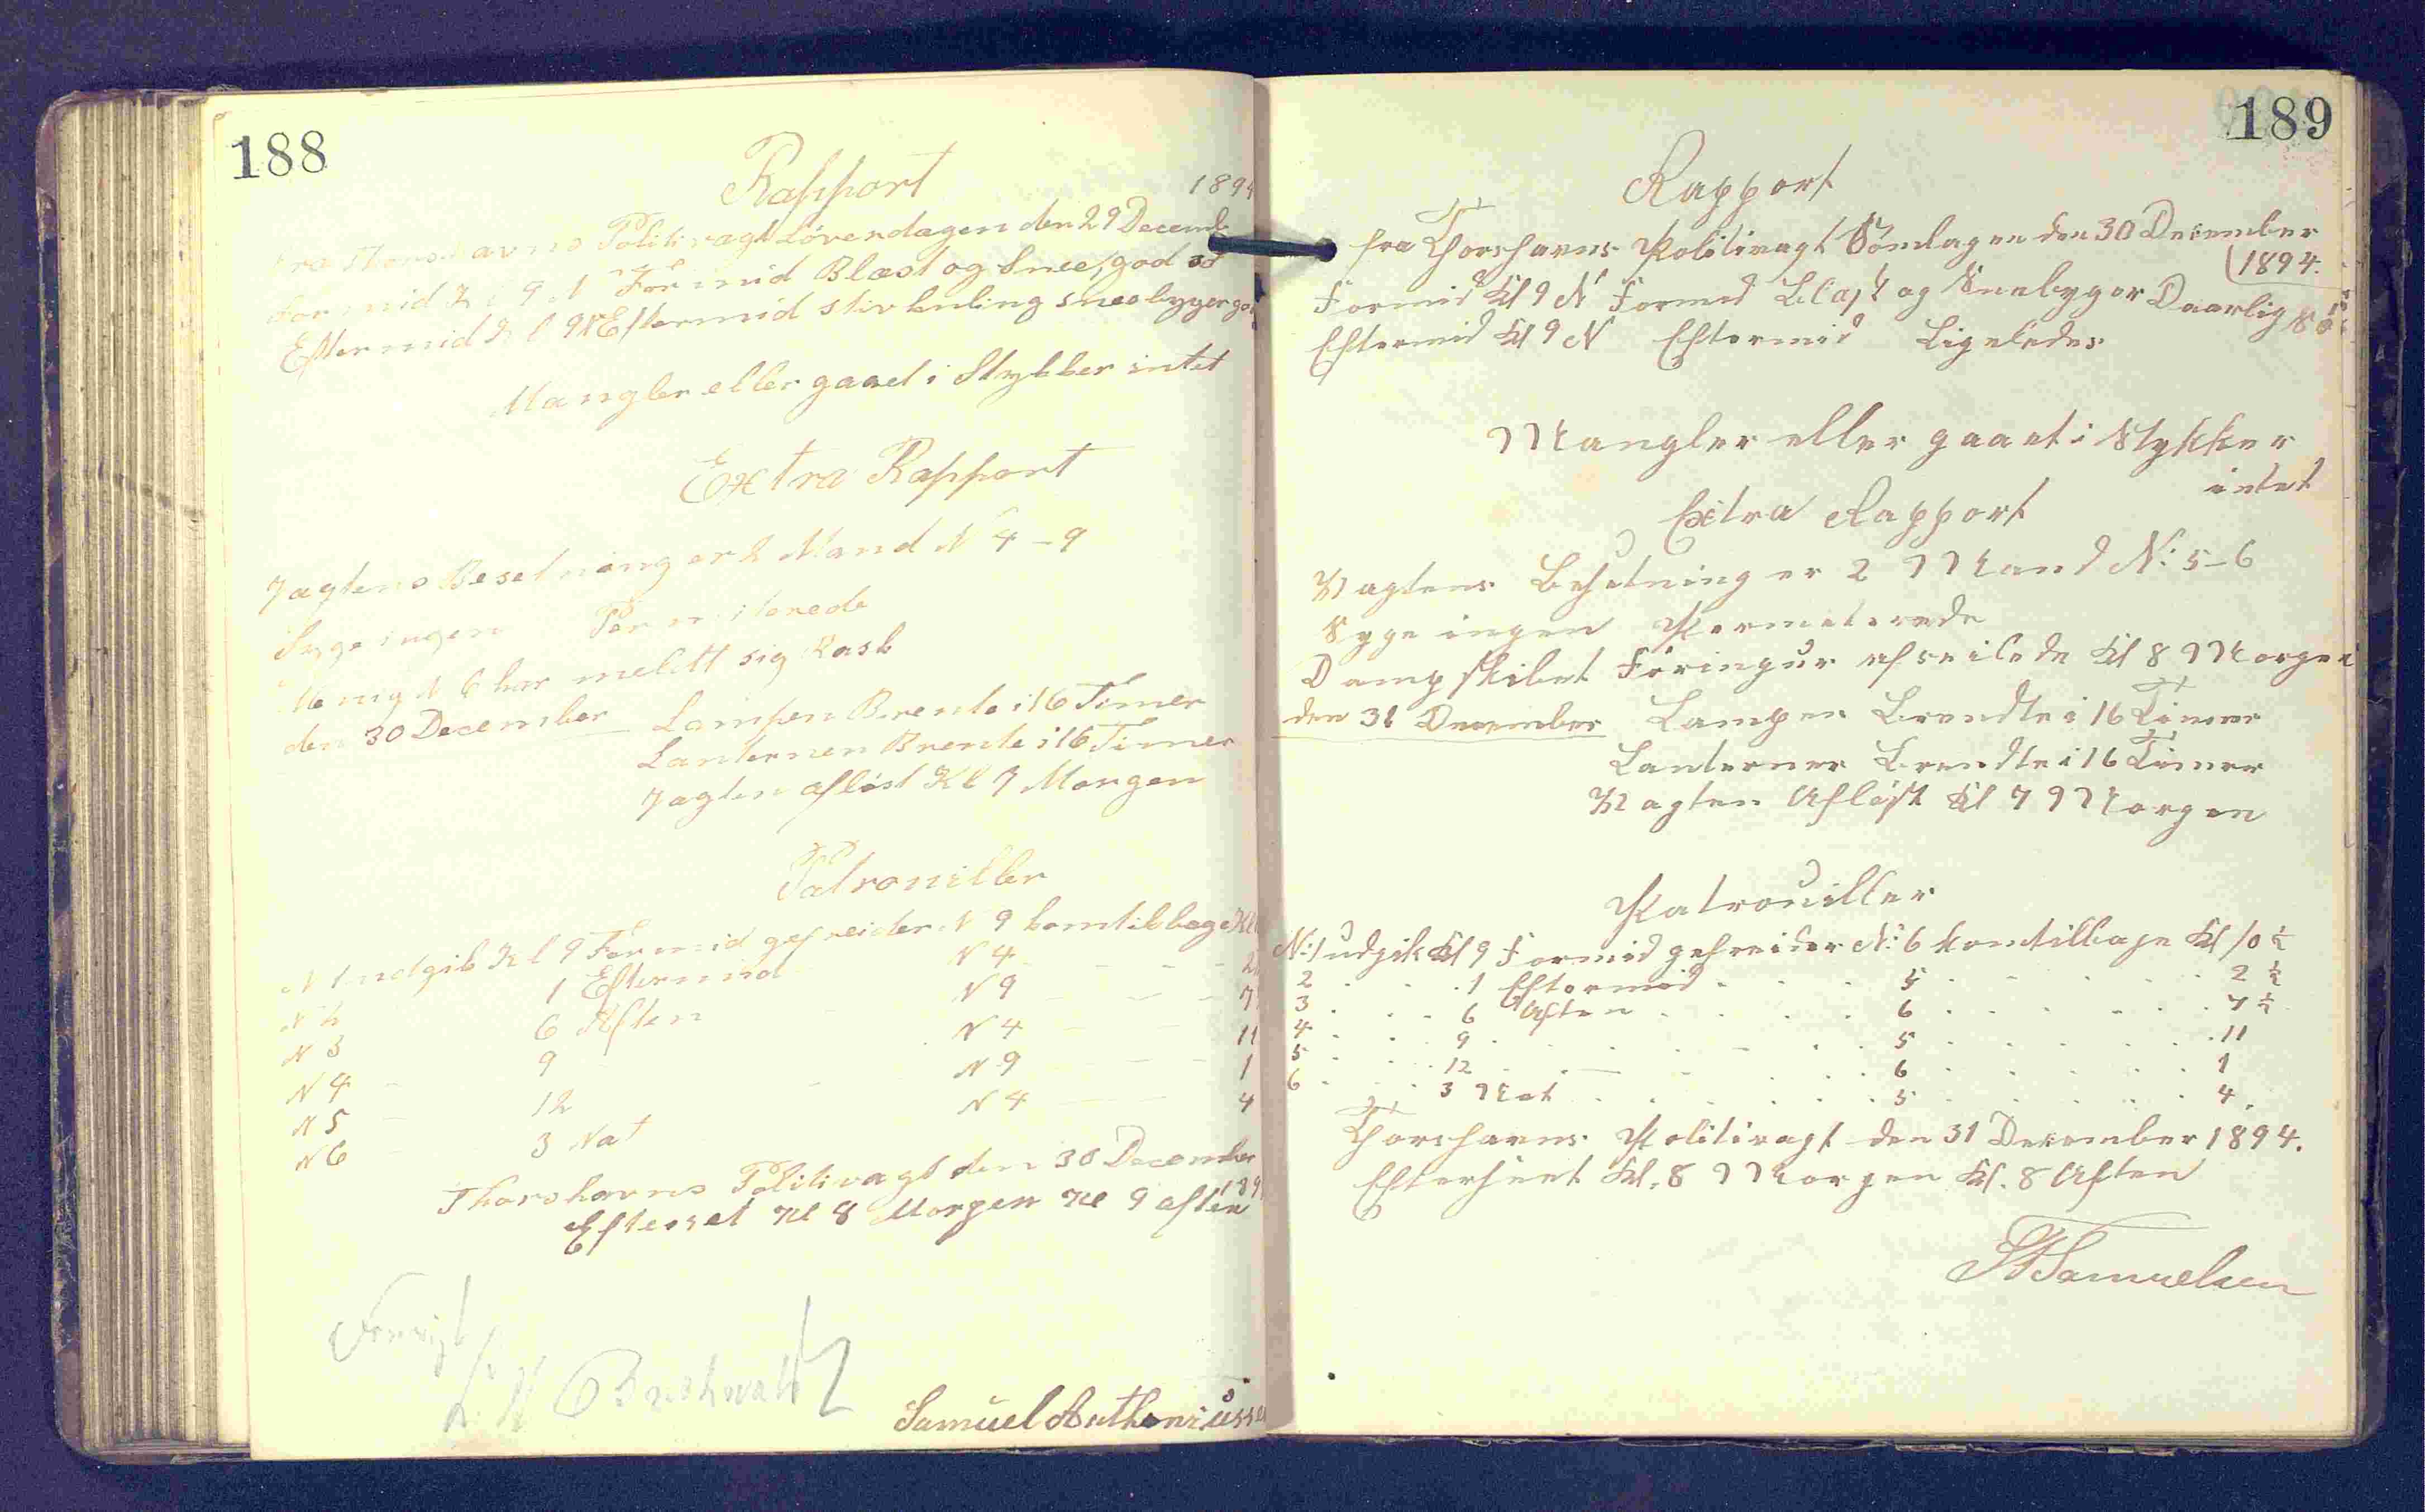 188
Rapport
1894
fra Thorshavns Politivagt Löverdagen den 29 Decemb
Formid Kl 9 N Formid Blæst og Snee, god
Eftermid Kl 9 N Eftermid stiv kuling sneebyger go
Mangler eller gaaet i Stykker intet
Extra Rapport
Vagtens Besetning er 2 Mand N 4 - 9
Syge ingen Permiterede
Menig N 6 har meldt sig Rask
den 30 December Lampen Brente i 16 Timer
Lanternen Brente i 16 Timer
Vagten aflöst Kl 7 Morgen
Patrouiller
N 1 udgik Kl 9 Formid gefreider N 9 kom tilbage Kl
N 2 1 Eftermid N 4 - - - 2
N 3 6 Aften N 9 - - - 7
N 4 - 9 N 4 - - - 11
N 5 - 12 - N 9 - - - 1
N 6 - 3 Nat N 4 - - - 4
Thorshavns Politivagt den 30 December
189
Efterset Kl 8 Morgen Kl 9 aften
Forevist
Buchwaldt
Samuel Anthoniusse
189
Rapport
fra Thorshavns Politivagt Söndagen den 30 December
1894.
Formid Kl 9 N Formid Blæst og Sneebyger Daarlig
Eftermid Kl 9 N Eftermid Ligeledes
Mangler eller gaaet i Stykker
intet
Extra Rapport
Vagtens Besetning er 2 Mand N: 5-6
Syge ingen Permeterede
Dampskibet Föringur afseilede Kl 8 Morgen
den 31 December Lampen Brendte i 16 Timer
Lanternen Brendte i 16 Timer
Vagten Aflöst Kl 7 Morgen
Patrouiller
N: 1 udgik Kl 9 Formid gefreider N: 6 kom tilbage Kl 10 ½
2 . . . 1 Eftermid . . . 5 . . . . . 2 ½
3 . . . 6 Aften . . . . 6 . . . . . 7 ½
4 . . . 9 . . . . . . 5 . . . . . 11
5 . . . 12 . . . . . . 6 . . . . . 1
6 . . . 3 Nat . . . . . 5 . . . . . 4.
Thorshavns Politivagt den 31 December 1894.
Efterseet Kl. 8 Morgen Kl. 8 Aften
Samuelsen